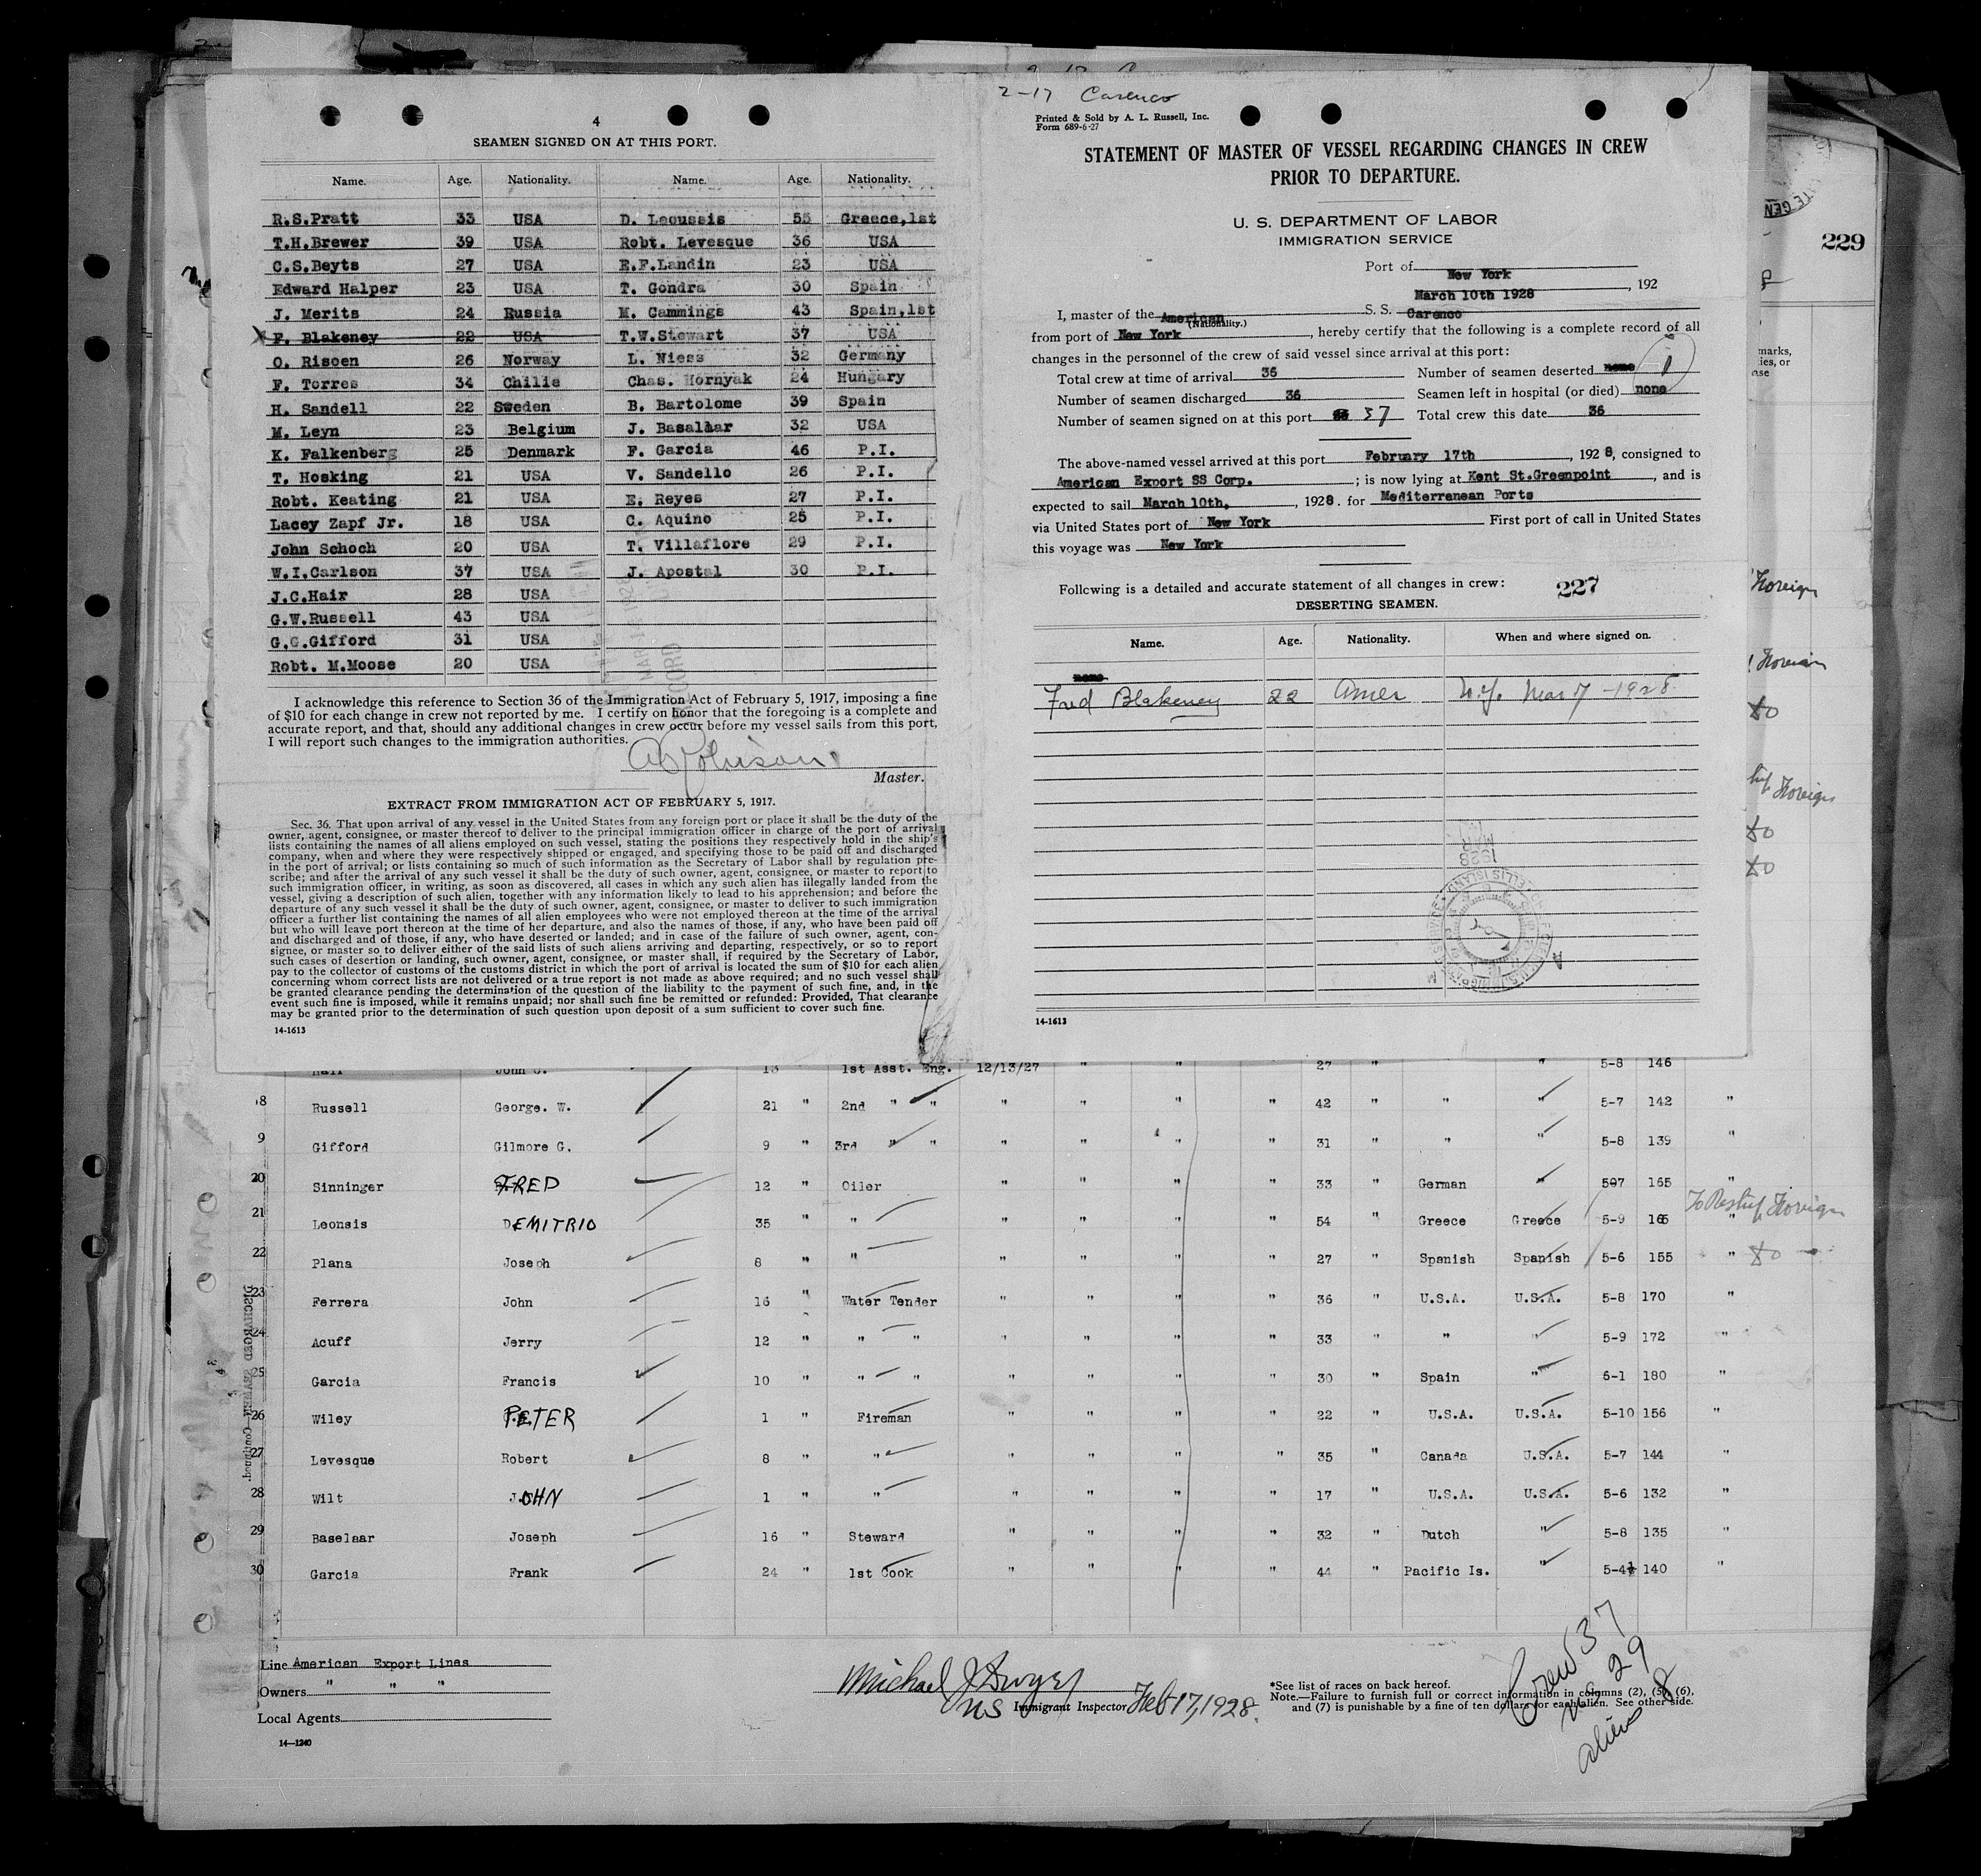 4
SEAMEN SIGNED ON AT THIS PORT.
Name. Age. Nationality. Name. Age. Nationality.
R.S.Pratt 33 USA D. Leoussis 55 Greece,1st
T.H.Brewer 39 USA Robt. Levesque 36 USA
C.S.Beyts 27 USA E.F.Landin 23 USA
Edward Halper 23 USA T. Gondra 30 Spain
J. Merits 24 Russia M. Cammings 43 Spain,1st
X F. Blakeney 22 USA T.W.Stewart 37 USA
O. Risoen 26 Norway L. Niess 32 Germany
F. Torres 34 Chilie Chas. Hornyak 24 Hungary
H. Sandell 22 Sweden B. Bartolome 39 Spain
M. Leyn 23 Belgium J. Basallar 32 USA
K. Falkenberg 25 Denmark F. Garcia 46 P.I.
T. Hosking 21 USA V. Sandello 26 P.I.
Robt. Keating 21 USA E. Reyes 27 P.I.
Lacey Zapf Jr. 18 USA C. Aquino 25 P.I.
John Schoch 20 USA T. Villaflore 29 P.I.
W.I.Carlson 37 USA J. Apostal 30 P.I.
J.C.Hair 28 USA
G.W.Russell 43 USA
G.G.Gifford 31 USA
Robt. M.Moose 20 USA
I acknowledge this reference to Section 36 of the Immigration Act of February 5, 1917, imposing a fine
of $10 for each change in crew not reported by me. I certify on honor that the foregoing is a complete and
accurate report, and that, should any additional changes in crew occur before my vessel sails from this port,
I will report such changes to the immigration authorities.
Master.
EXTRACT FROM IMMIGRATION ACT OF FEBRUARY 5, 1917.
Sec. 36. That upon arrival of any vessel in the United States from any foreign port or place it shall be the duty of the
owner, agent, consignee, or master thereof to deliver to the principal immigration officer in charge of the port of arrival
lists containing the names of all aliens employed on such vessel, stating the positions they respectively hold in the ship's
company, when and where they were respectively shipped or engaged, and specifying those to be paid off and discharged
in the port of arrival; or lists containing so much of such information as the Secretary of Labor shall by regulation pre-
scribe; and after the arrival of any such vessel it shall be the duty of such owner, agent, consignee, or master to report to
such immigration officer, in writing, as soon as discovered, all cases in which any such alien has illegally landed from the
vessel, giving a description of such alien, together with any information likely to lead to his apprehension; and before the
departure of any such vessel it shall be the duty of such owner, agent, consignee, or master to deliver to such immigration
officer a further list containing the names of all alien employees who were not employed thereon at the time of the arrival
but who will leave port thereon at the time of her departure, and also the names of those, if any, who have been paid off
and discharged and of those, if any, who have deserted or landed; and in case of the failure of such owner, agent, con-
signee, or master so to deliver either of the said lists of such aliens arriving and departing, respectively, or so to report
such cases of desertion or landing, such owner, agent, consignee, or master shall, if required by the Secretary of Labor,
pay to the collector of customs of the customs district in which the port of arrival is located the sum of $10 for each alien
concerning whom correct lists are not delivered or a true report is not made as above required; and no such vessel shall
be granted clearance pending the determination of the question of the liability to the payment of such fine, and, in the
event such fine is imposed, while it remains unpaid; nor shall such fine be remitted or refunded: Provided, That clearance
may be granted prior to the determination of such question upon deposit of a sum sufficient to cover such fine.
14-1613
2-17 Carenco
Printed & Sold by A. L. Russell, Inc.
Form 689-6-27
STATEMENT OF MASTER OF VESSEL REGARDING CHANGES IN CREW
PRIOR TO DEPARTURE.
U. S. DEPARTMENT OF LABOR
IMMIGRATION SERVICE
Port of New York
March 10th 1928, 192
I, master of the American S. S. Carenco
(Nationality.)
from port of New York, hereby certify that the following is a complete record of all
changes in the personnel of the crew of said vessel since arrival at this port:
Total crew at time of arrival 36 Number of seamen deserted none 1
Number of seamen discharged 36 Seamen left in hospital (or died) none
Number of seamen signed on at this port 37 Total crew this date 36
The above-named vessel arrived at this port February 17th, 1928, consigned to
American Export SS Corp.; is now lying at Kent St.Greenpoint, and is
expected to sail March 10th, 1928. for Mediterranean Ports
via United States port of New York First port of call in United States
this voyage was New York
Following is a detailed and accurate statement of all changes in crew: 227
DESERTING SEAMEN.
Name. Age. Nationality. When and where signed on.
none
Fred Blakeney 22 Amer N.Y. Mar 7 -1928
14-1613
229
Foreign
Foreign
Foreign
Hair John C. 13 1st Asst. Eng. 12/13/27 " " 27 " " 5-8 146
18 Russell George. W. 21 " 2nd " " " " " " 42 " " " 5-7 142 "
9 Gifford Gilmore G. 9 " 3rd " " " " " " 31 " " " 5-8 139 "
20 Sinninger FRED 12 " Oiler " " " " 33 " German " 507 165 "
21 Leonsis DEMITRIO 35 " " " " " " 54 " Greece Greece 5-9 165 " To Reship Foreign
22 Plana Joseph 8 " " " " " " 27 " Spanish Spanish 5-6 155 "
23 Ferrera John 16 " Water Tender " " " " 36 " U.S.A. U.S.A. 5-8 170 "
24 Acuff Jerry 12 " " " " " " " 33 " " " 5-9 172 "
25 Garcia Francis 10 " " " " " " " 30 " Spain " 6-1 180 "
26 Wiley PETER 1 " Fireman " " " " 22 " U.S.A. U.S.A. 5-10 156 "
27 Levesque Robert 8 " " " " " " 35 " Canada U.S.A. 5-7 144 "
28 Wilt JOHN 1 " " " " " " 17 " U.S.A. U.S.A. 5-6 132 "
29 Baselaar Joseph 16 " Steward " " " " 32 " Dutch " 5-8 135 "
30 Garcia Frank 24 " 1st Cook " " " " 44 " Pacific Is. " 5-4½ 140 "
Line American Export Lines
Owners " " "
Local Agents
14—1240
Michael J Dwyer
US Immigrant Inspector Feb 17, 1928.
*See list of races on back hereof.
Note.—Failure to furnish full or correct information in columns (2), (5), (6),
and (7) is punishable by a fine of ten dollars for each alien. See other side.
Crew 37
US 29
aliens 8